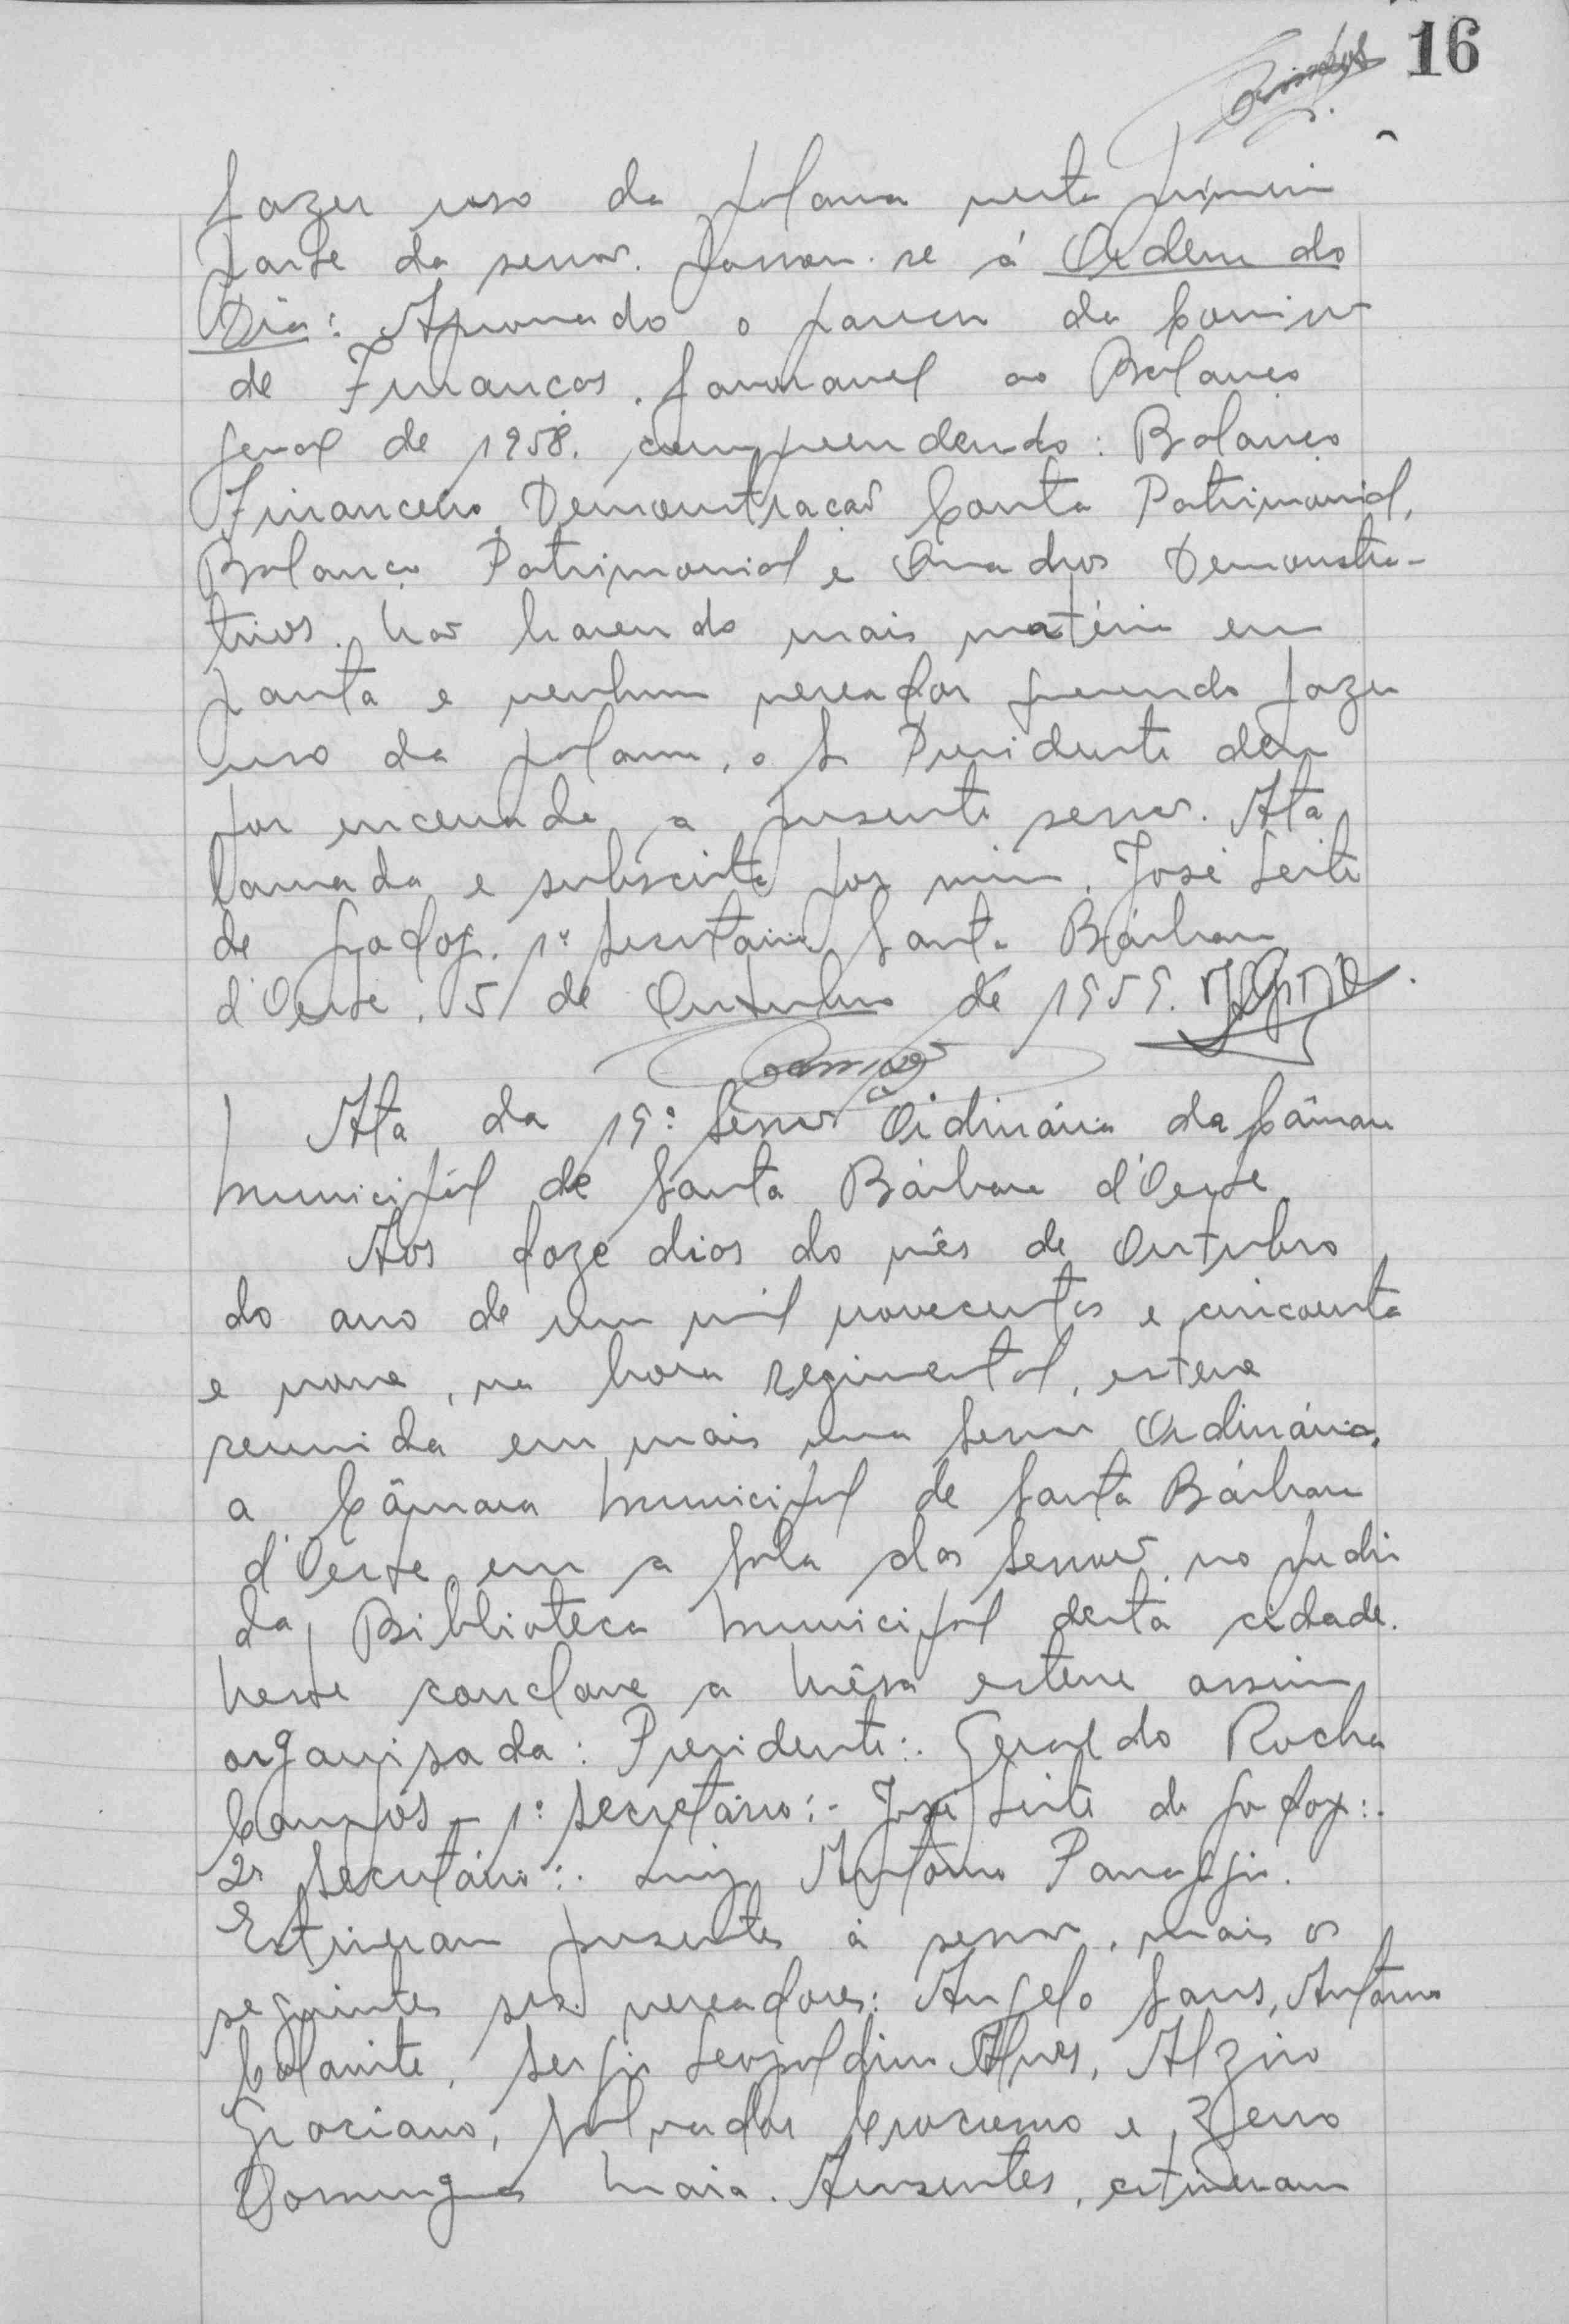 16
fazer uso da palavra nesta primeira
parte da sessão. Passou-se á Ordem do
Dia: Aprovado o parecer da Comissão
de Finanças, favoravel ao Balanço
geral de 1958, compreendendo: Balanço
Financeiro, Demonstração Conta Patrimonial,
Balanço Patrimonial e Quadros Demonstra-
tivos. Não havendo mais matéria em
pauta e nenhum vereador querendo fazer
uso da palavra, o Sr Presidente deu
por encerrada a presente sessão. Ata
lavrada e subscrita por mim, José Leite
de Godoy, 1º Secretário. Santa Bárbara
d'Oeste, 5 de Outubro de 1959.
Ata da 19ª Sessão Ordinária da Câmara
Municipal de Santa Bárbara d'Oeste.
Aos doze dias do mês de Outubro
do ano de um mil novecentos e cincoenta
e nove, na hora regimental, esteve
reunida em mais uma Sessão Ordinária,
a Câmara Municipal de Santa Bárbara
d'Oeste em a Sala das Sessões, no prédio
da Biblioteca Municipal desta cidade.
Neste conclave a Mêsa esteve assim
organisada: Presidente:. Geraldo Rocha
Campos - 1º Secretário:- José Leite de Godoy:.
2º Secretário:. Luiz Antônio Panaggio.
Estiveram presentes á sessão, mais os
seguintes srs. vereadores: Angelo Sans, Antônio
Leopoldino Alves, Alziro
Graciano, Salvador e Zeno
Domingues Maia. Ausentes, estiveram